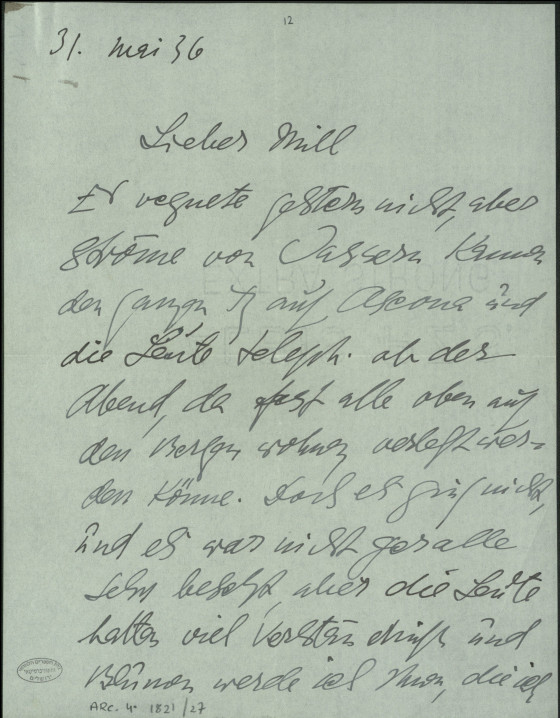 12
31. Mai 36
Lieber Mill
Es regnete gestern nicht, aber
Ströme von Wassern kamen
den ganzen Tg auf Ascona und
die Leute teleph. ob der
Abend, da fast alle oben auf
den Bergen wohnen verlegt wer-
den könne. Doch es ging nicht,
und es war nicht gerade
sehr besetzt, aber die Leute
hatten viel Verständnis und
werde ich Ihnen, die ich
ARC. 4° 1821/27